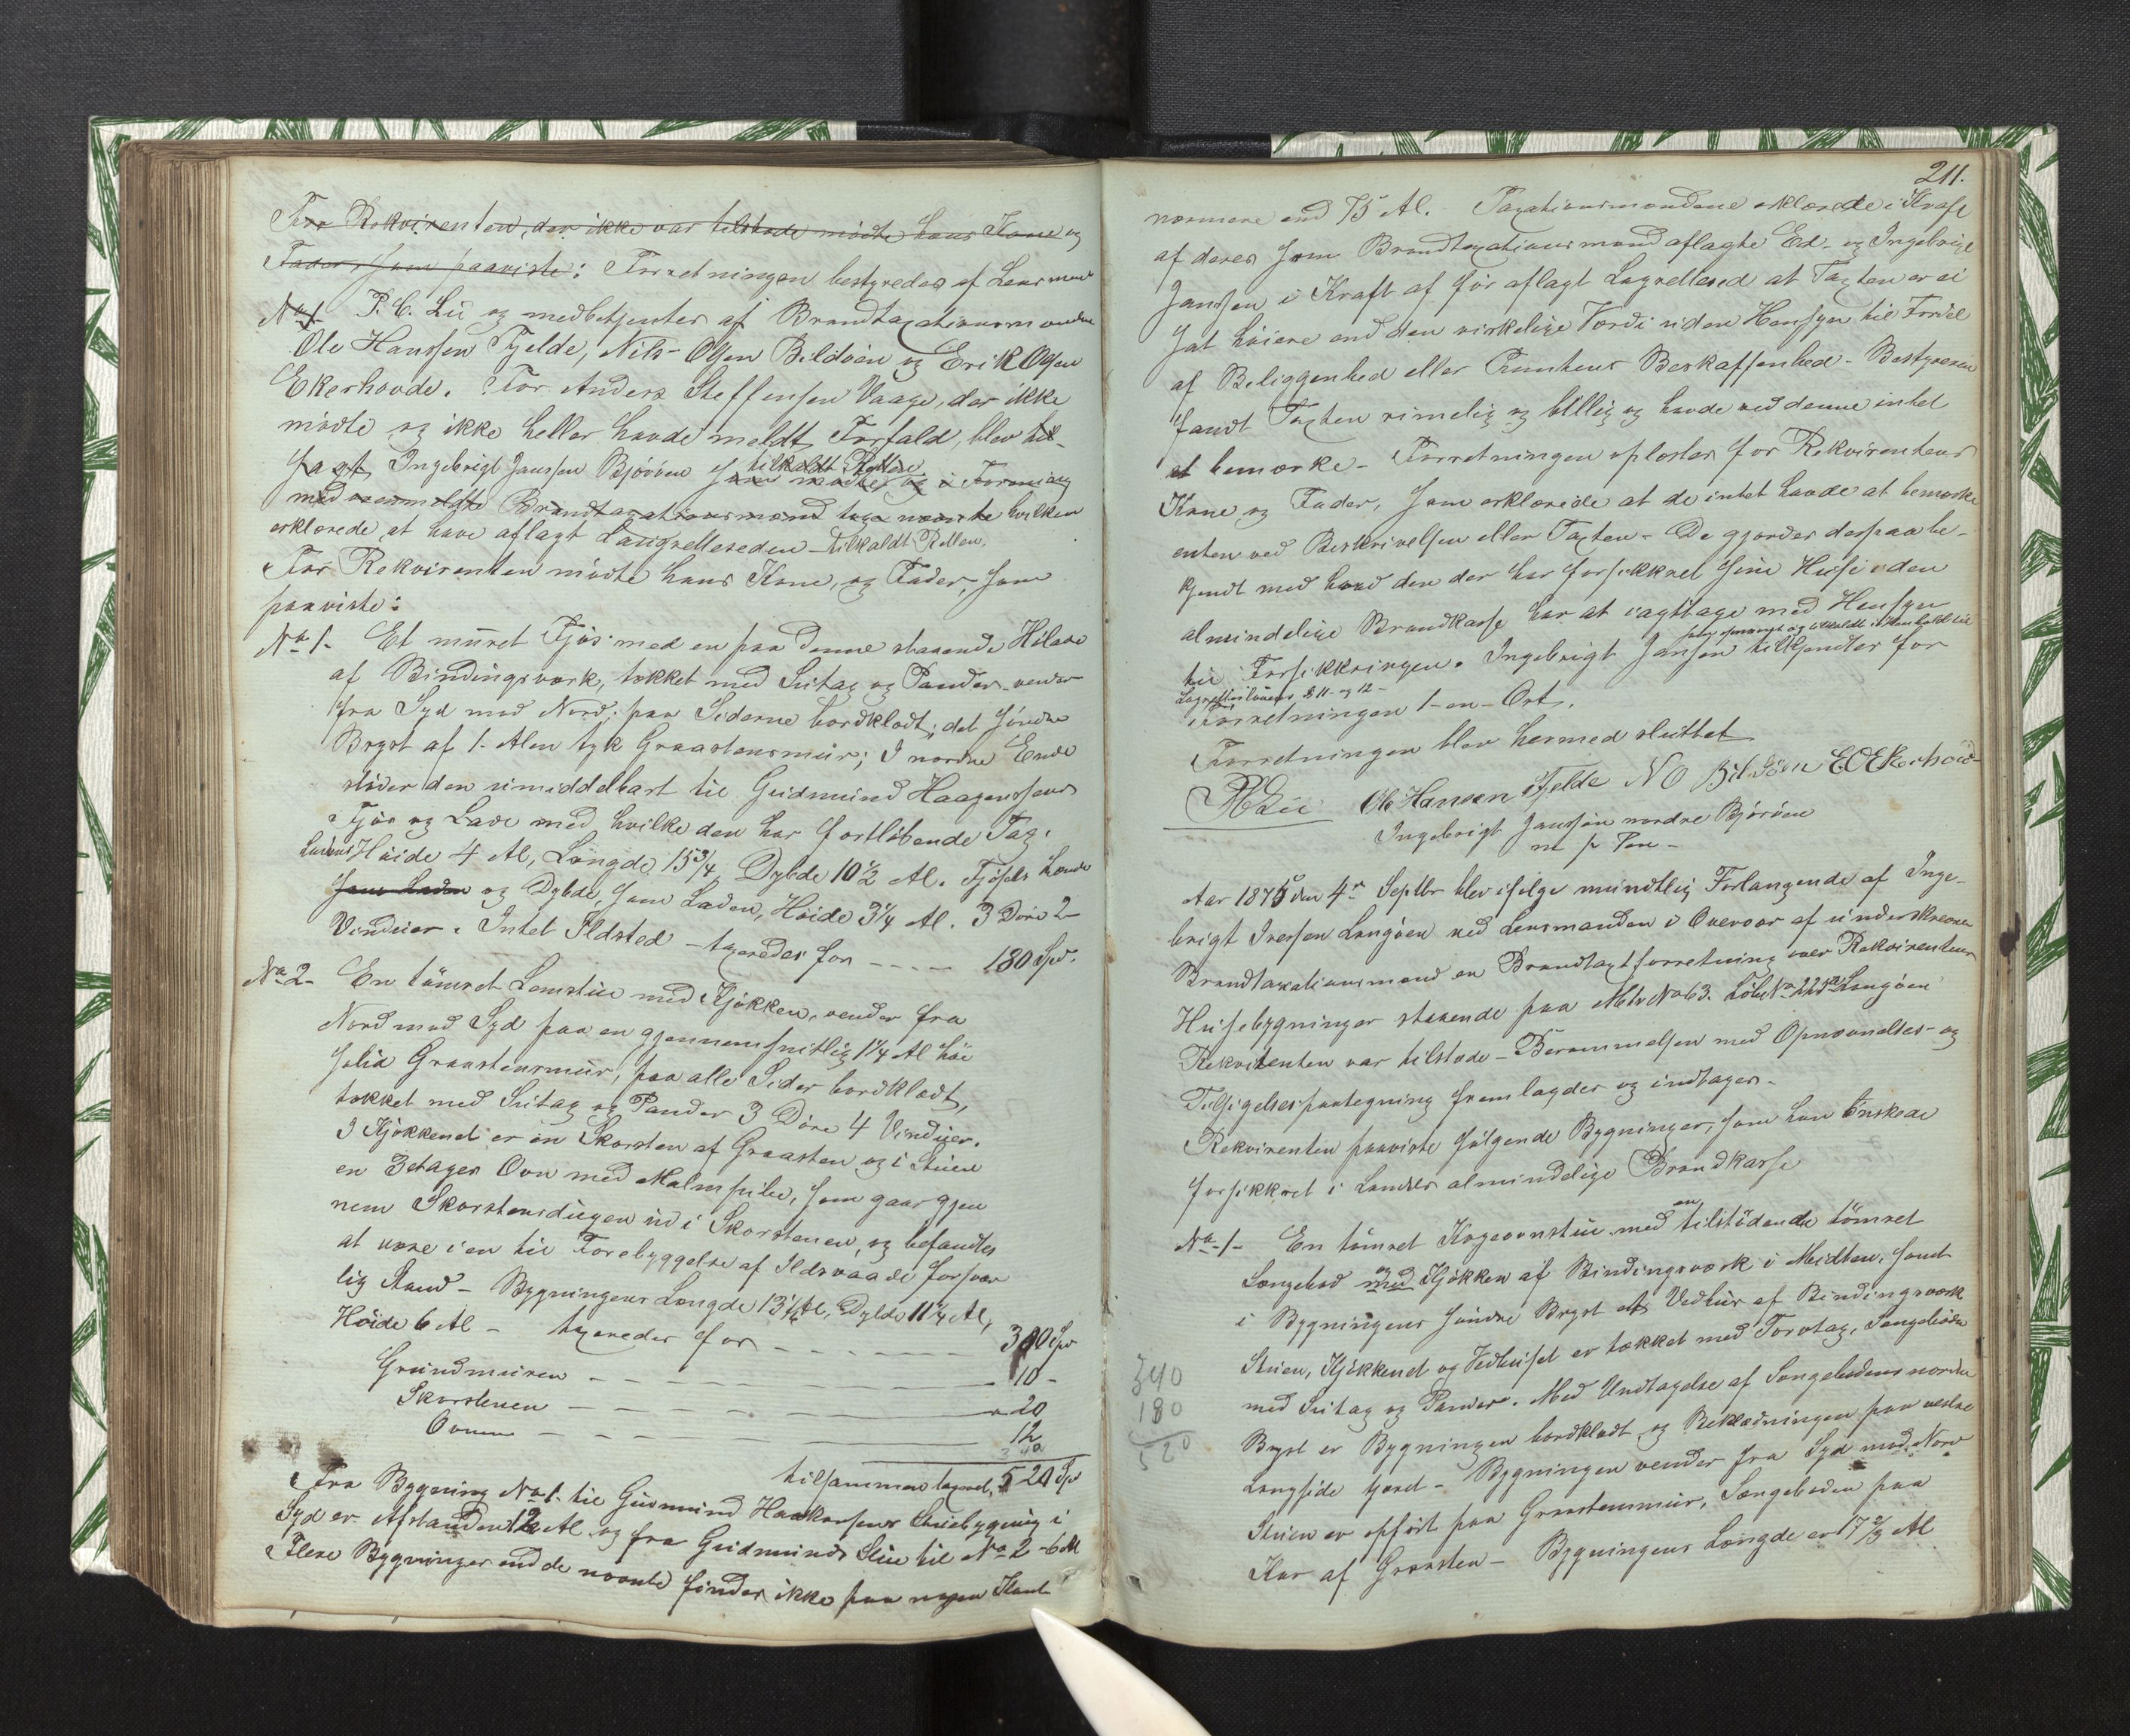 For Rekvirenten, der ikke var tilstede mødte hans Kone og
Fader, som paaviste: Forretningen bestyredes af Lensmand
No 1. P. C. Lie og medbetjentes af Brandtaxationsmændene
Ole Hanssen Fjelde, Nils Olsen Bildøen og Erik Olsen
Ekerhovde. For Anders Steffensen Vaage, der ikke
mødte og ikke heller havde meldt Forfald, blev til-
sagt Ingebrigt Janssen Bjorøen tilkaldt som mødte og i Forening
med ovenmeldte Brandtaxationsmænd hvilken
erklærede at have aflagt Laugretteseden - tilkaldt
For Rekvirenten mødte hans Kone og Fader, som
paaviste:
No 1- Et muret Fjøs med en paa denne staaende Hölade
af Bindingsværk, tækket med Sutag og Pander - vender
fra Syd mod Nord; paa Siderne bordklædt; det søndre
Bryst af 1- Alen tyk Graastensmur; I nordre Ende
støder den umiddelbart til Gudmund Haagensens
Fjøs og Lade med hvilke den har fortløbende Tag.
Ladens Høide 4 Al, Længde 15 3/4, Dybde 10 1/2 Al. Fjøsets Længde
som Laden og Dybde, som Laden, Høide 3 1/4 Al. 3 Döre 2
Vinduer. Intet Ildsted - taxeredes for - - - - 180 Spd.
No 2- En tömret Lemstue med Kjøkken, vender fra
Nord mod Syd paa en gjennemsnitlig 1 1/4 Al høi
solid Graastensmur, paa alle Sider bordklædt,
tækket med Sutag og Pander 3 Döre 4 Vinduer.
I Kjøkkenet er en Skorsten af Graasten og i Stuen
en 3 etages Ovn med Malmpibe, som gaar gjen
nem Skorstensdugen ud i Skorstenen, og befandtes
at være i en til Forebyggelse af Ildsvaade forsvar
lig Stand - Bygningens Længde 13 1/4 Al, Dybde 11 1/4 Al,
Høide 6 Al - taxeredes for - - - - - - 300 Spd
Grundmuren - - - - - 10 -
Skorstenen - - - - - 20
Ovnen - - - - - 12
340
tilsammen taxeret, 520 Spd
Fra Bygning No 1. til Gudmund Haakonsens Stuebygning i
Syd er Afstanden 12 Al og fra Gudmunds Stue til No 2 - 6 Al
Flere Bygninger end de nævnte findes ikke paa nogen Kant
211.
nærmere end 75 Al. Taxationsmændene erklærede i Kraft
af deres som Brandtaxationsmænd aflagte Ed - og Ingebrigt
Janssen i Kraft af før aflagt Lagretteed at Taxten er ei
sat høiere end den virkelige Værdi uden Hensyn til Fordel
af Beliggenhed eller Tomtens Beskaffenhed - Bestyreren
fandt Taxten rimelig og billig og havde ved denne intet
at bemærke - Forretningen oplæstes for Rekvirentens
Kone og Fader, som erklærede at de intet havde at bemærke
enten ved Beskrivelsen eller Taxten - De gjordes derpaa be-
kjendt med hvad den der har forsikkret sine Huse i den
almindelige Brandkasse har at iagttage med Hensyn
og tilkaldt i Henhold til
til Forsikkringen. Ingebrigt Janssen tilkjendtes for
Lagrettelovens § 11 og 12 -
Forretningen 1 - en - Ort.
Forretningen blev hermed sluttet
PCLie Ole Hansen Fjelde N O Bildøen E O Ekerhovd-
Ingebrigt Janssøn nordre Bjorøen
m p Pen -
Aar 1875 den 4de Septbr blev ifølge mundtlig Forlangende af Inge-
brigt Iversen Langøen ved Lensmanden i Overvær af underskrevne
Brandtaxationsmænd en Brandtaxtforretning over Rekvirentens
Husebygninger staaende paa Matr No 63. Löbe No 225a Langøen
Rekvirenten var tilstede - Berammelsen med Opnævnelses- og
Tilsigelsespaategning fremlagdes og indtages.
Rekvirenten paaviste følgende Bygninger, som han Önskede
forsikkret i Landets almindelige Brandkasse
No - 1 - En tömret Kogeovnstue med en tilstödende tömret
Sengebod og med Kjökken af Bindingsværk i Midten, samt
i Bygningens søndre Bryst et Vedhus af Bindingsværk
Stuen, Kjøkkenet og Vedhuset er tækket med Torvtag, Sengeboden
med Sutag og Pander. Med Undtagelse af Sengebodens nordre
Bryst er Bygningen bordklædt og Beklædningen paa vestre
Langside tjæret - Bygningen vender fra Syd mod Nord
Stuen er opført paa Graastensmur, Sengeboden paa
Kar af Graasten - Bygningens Længde er 17 2/3 Al
340
180
520